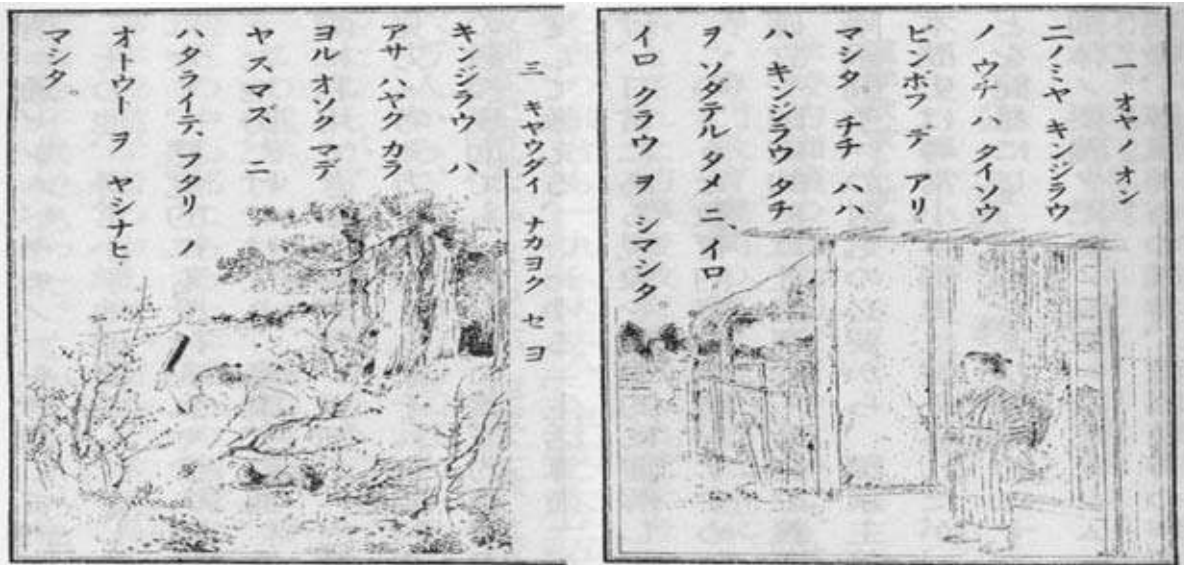 一 オヤノ オン
二ノミヤ キンジラウ
ノ ウチ ハ タイソウ
ビンボフ デ アリ
マシタ チチ ハハ
ハ キンジラウ タチ
ヲ ソダテル タメ ニ、イロ
イロ クラウ ヲ シマシタ。
三 キヤウダイ ナカヨク セヨ
キンジラウ ハ
アサ ハヤク カラ
ヨル オソク マデ
ヤスマズ ニ
ハタライテ、フタリ ノ
オトウト ヲ ヤシナヒ
マシタ。